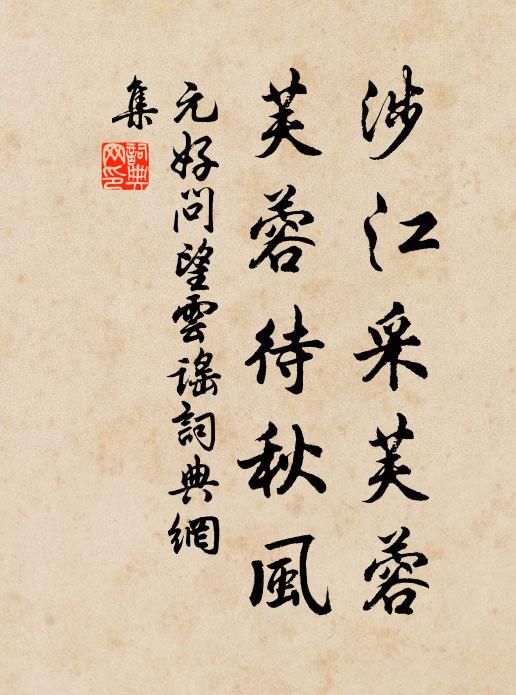 涉江采芙蓉
芙蓉待秋風
元好問望雲謠詞典網
集
詞典
網印